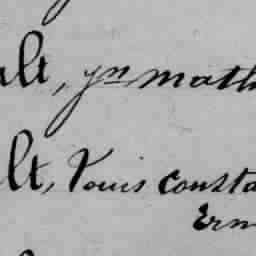 lt, yn math
lt, Louis consta
Erm